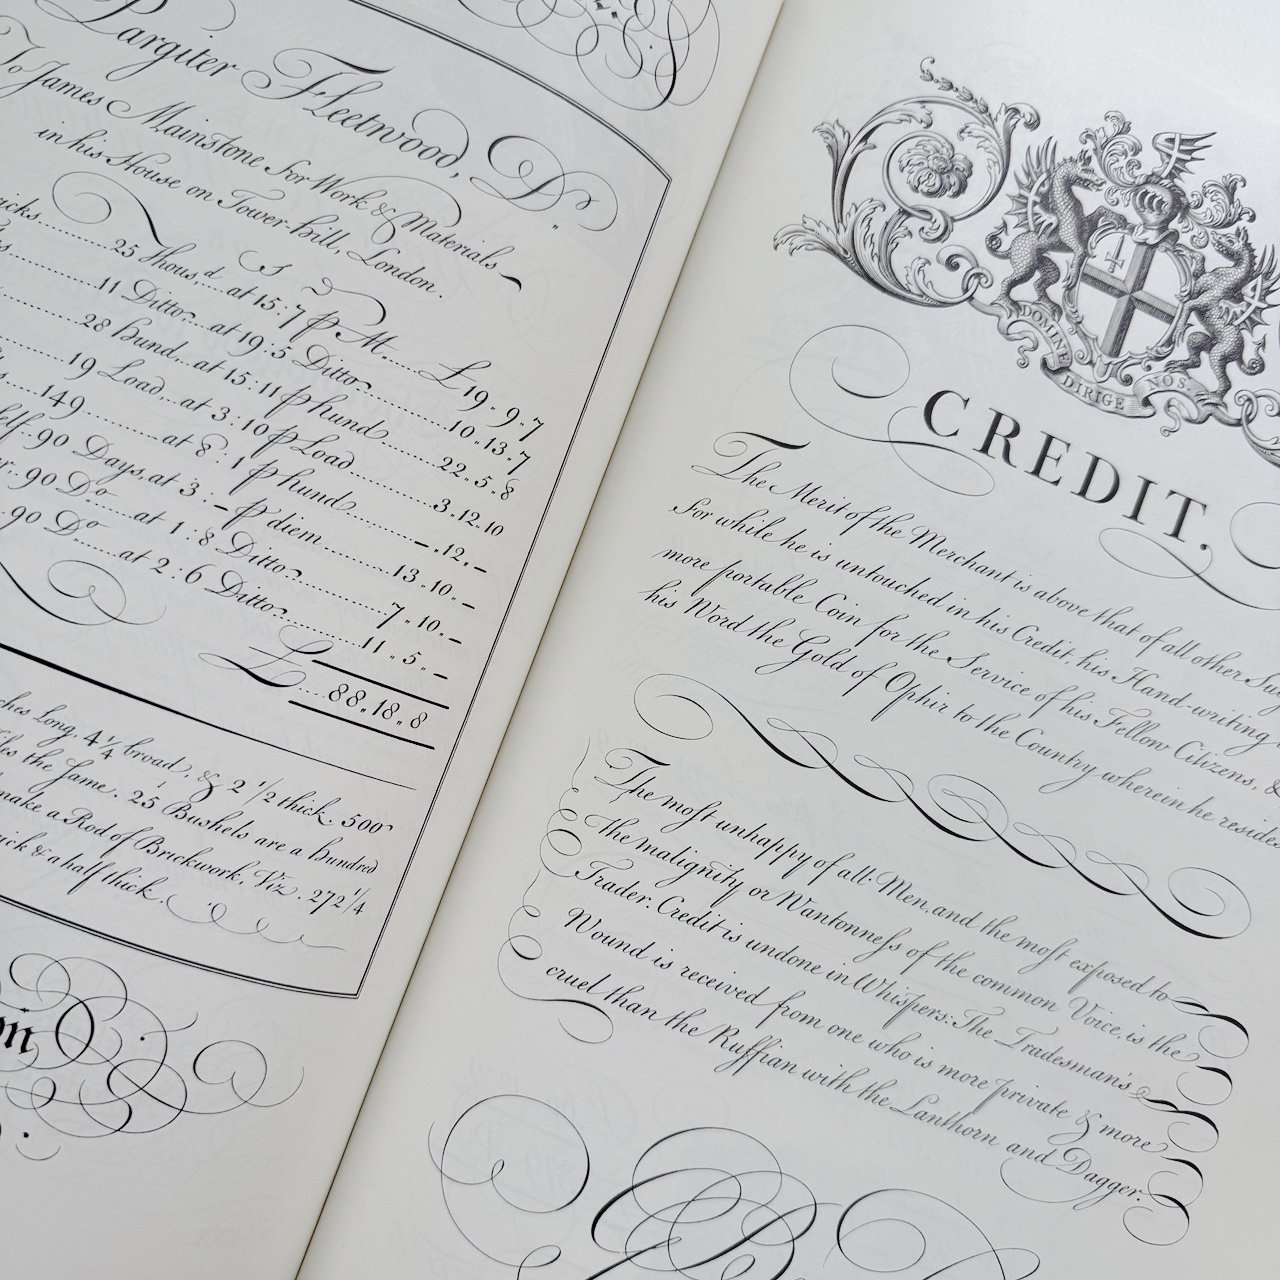 Pargiter Fleetwood, Dr
To James Mainstone for Work & Materials
in his House on Tower-hill, London.
25 Thous,d at 15:7 p M £19„9„7
11 Ditto, at 19:5 Ditto 10„13„7
28 hund at 15:11 p hund 22„5„8
19 Load, at 3:10 p Load 3„12„10
149 at 8:1 p hund —„12„—
90 Days, at 3:— p diem 13„10„—
90 Do at 1:8 Ditto 7„10„—
90 Do at 2:6 Ditto 11„5„—
£88„18„8
Long, 4¼ broad, & 2 1/2 thick. 500
the same. 25 Bushels are a hundred
make a Rod of Brickwork, Viz. 272 1/4
& a half thick.
DOMINE DIRIGE NOS.
CREDIT.
The Merit of the Merchant is above that of all other
For while he is untouched in his Credit, his Hand-writing
more portable Coin for the Service of his Fellow Citizens, &
his Word the Gold of Ophir to the Country wherein he resides
The moſt unhappy of all Men, and the moſt exposed to
the malignity or Wantonneſs of the common Voice, is the
Trader. Credit is undone in Whispers: The Tradesman's
Wound is received from one who is more private & more
cruel than the Ruffian with the Lanthorn and Dagger.